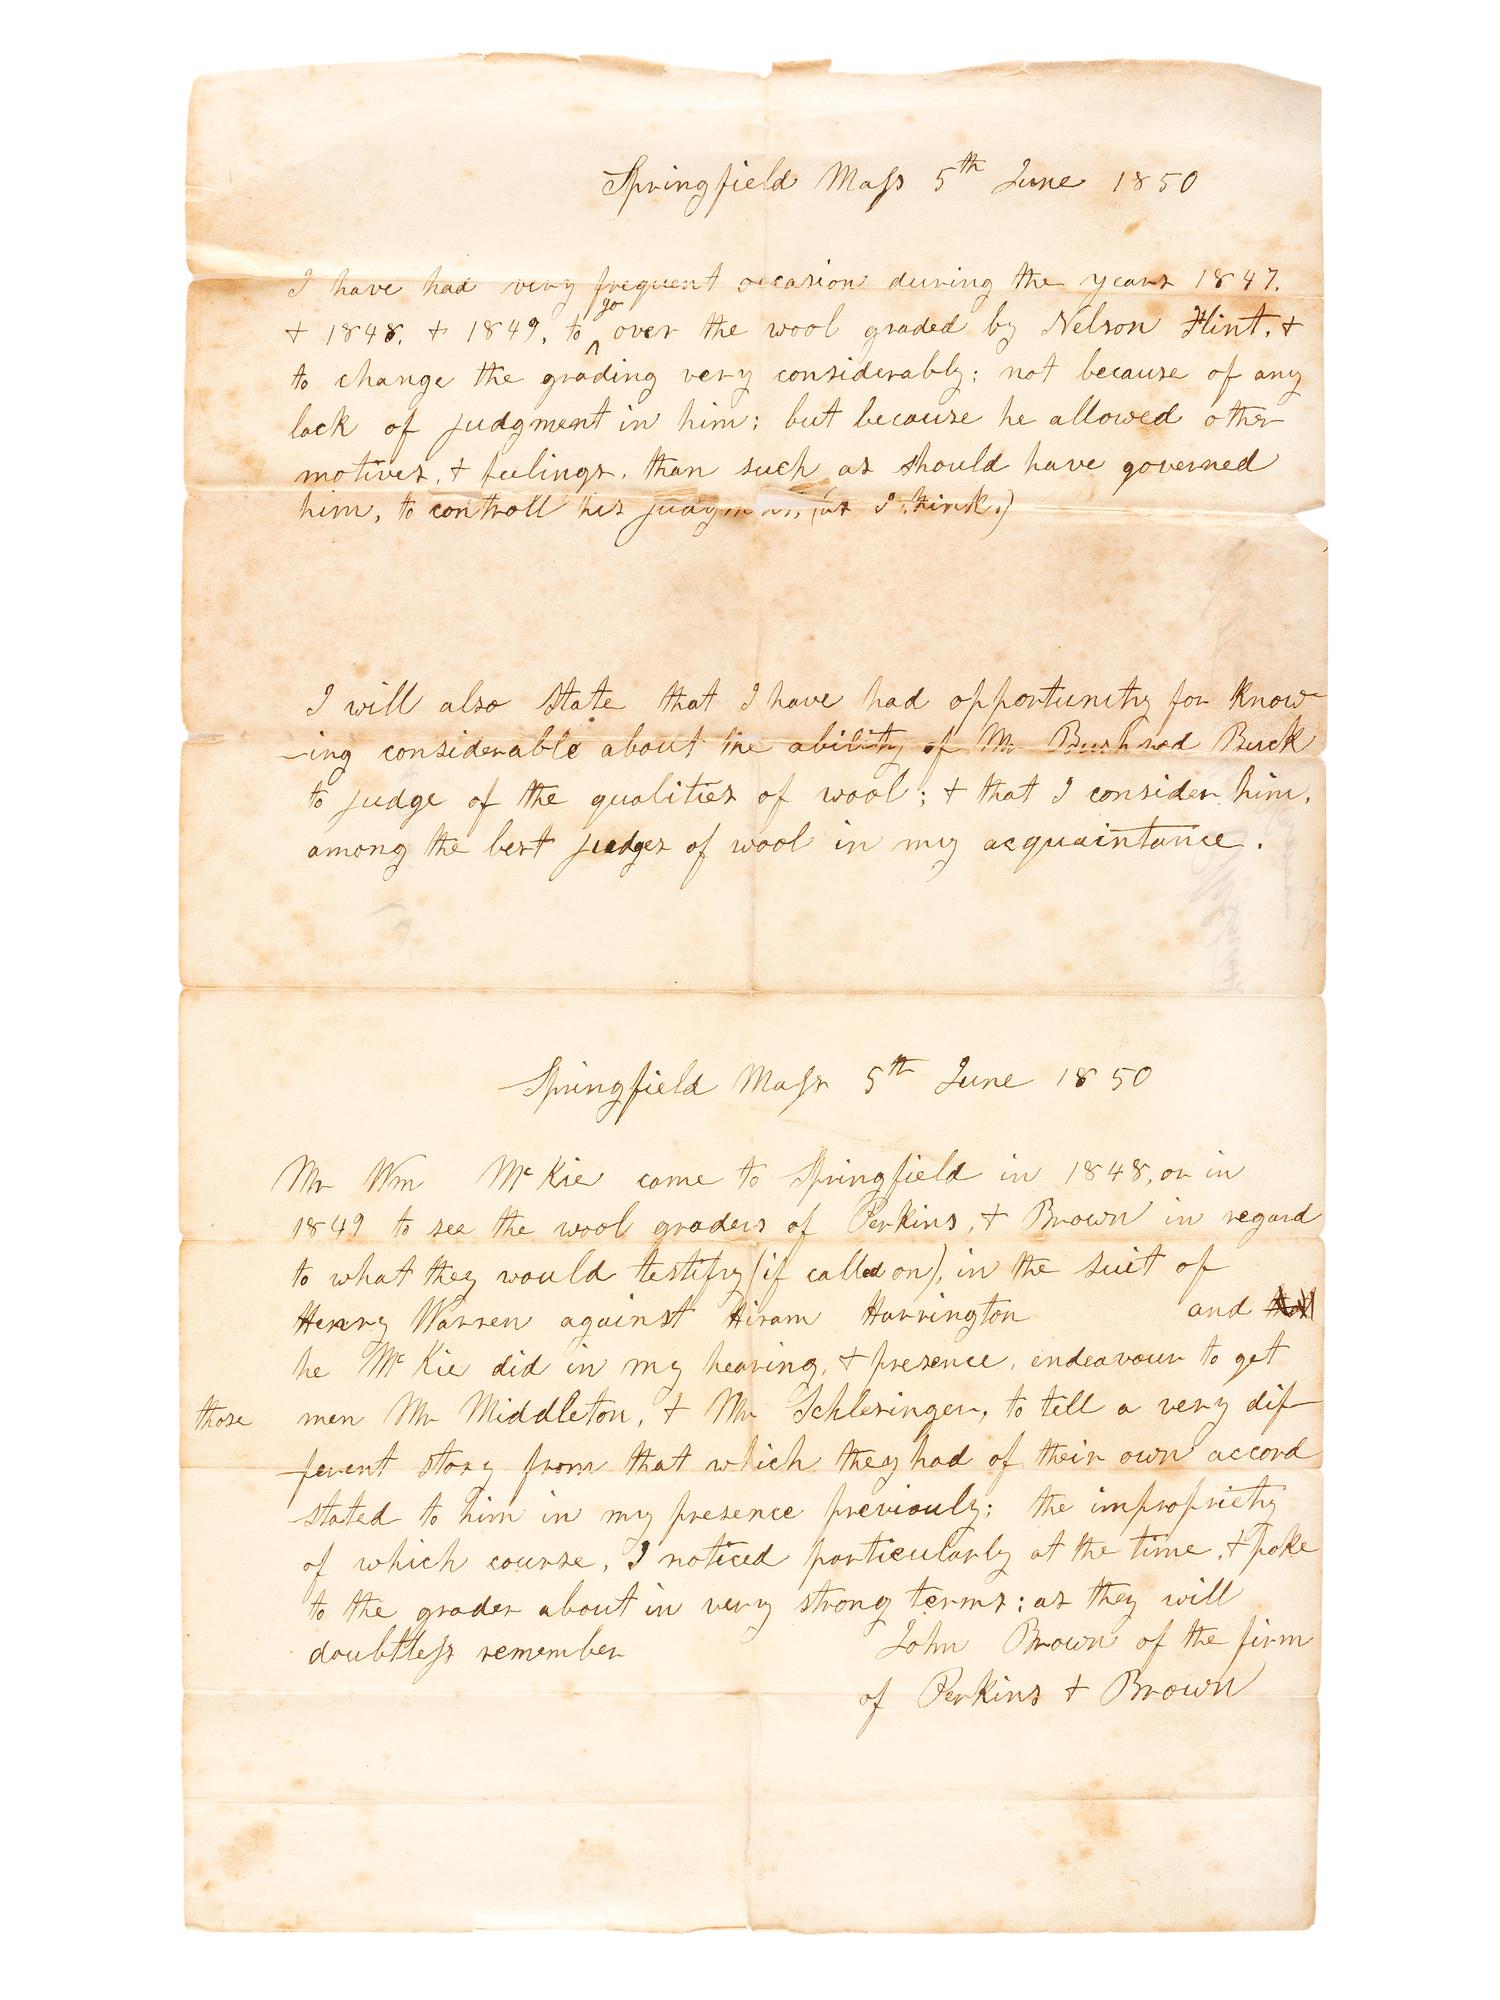 Springfield Mass 5th June 1850
I have had very frequent occasion during the years 1847.
& 1848. & 1849, to go over the wool graded by Nelson Flint, &
to change the grading very considerably; not because of any
lack of judgment in him; but because he allowed other
motives, & feelings, than such as should have governed
him, to controll his judgment, (as I think.)
I will also state that I have had opportunity for know-
-ing considerable about the ability of Mr Bushrod Buck
to judge of the qualities of wool; & that I consider him,
among the best judges of wool in my acquaintance.
Springfield Mass 5th June 1850
Mr Wm McKie came to Springfield in 1848, or in
1849 to see the wool graders of Perkins, & Brown in regard
to what they would testify (if called on), in the suit of
Henry Warren against Hiram Harrington and
he McKie did in my hearing, & presence, endeavour to get
those men Mr Middleton, & Mr Schlesinger, to tell a very dif-
-ferent story from that which they had of their own accord
stated to him in my presence previouly; the impropriety
of which course, I noticed particularly at the time, & spoke
to the grader about in very strong terms; as they will
doubtless remember John Brown of the firm
of Perkins & Brown